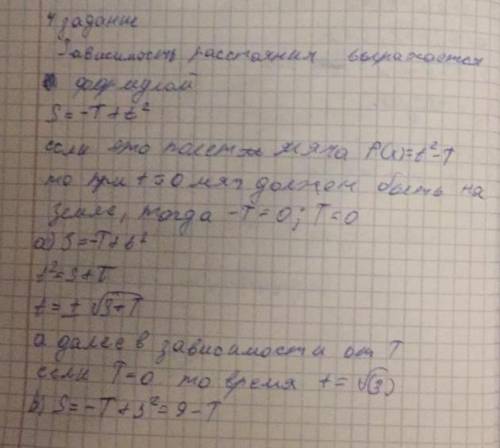 4 задание
Зависимость расстояния выражается
формулой
S = -T + t²
если это полет мяча f(x) = t² - T
то при t = 0 мяч должен быть на
земле, тогда -T = 0; T = 0
а) S = -T + t²
t² = S + T
t = ± √S+T
а далее в зависимости от T
если T = 0 то время t = √(S)
b) S = -T + 3² = 9 - T